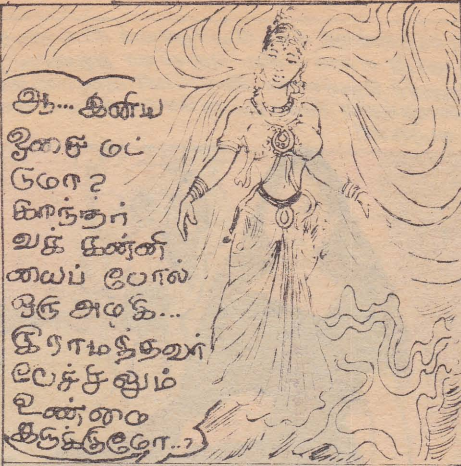 ஆ... இனிய
ஓசை மட்
டுமா?
காந்தர்
வக் கன்னி
யைப் போல்
ஒரு அழகி...
கிராமத்தவர்
பேச்சிலும்
உண்மை
இருக்குமோ..?